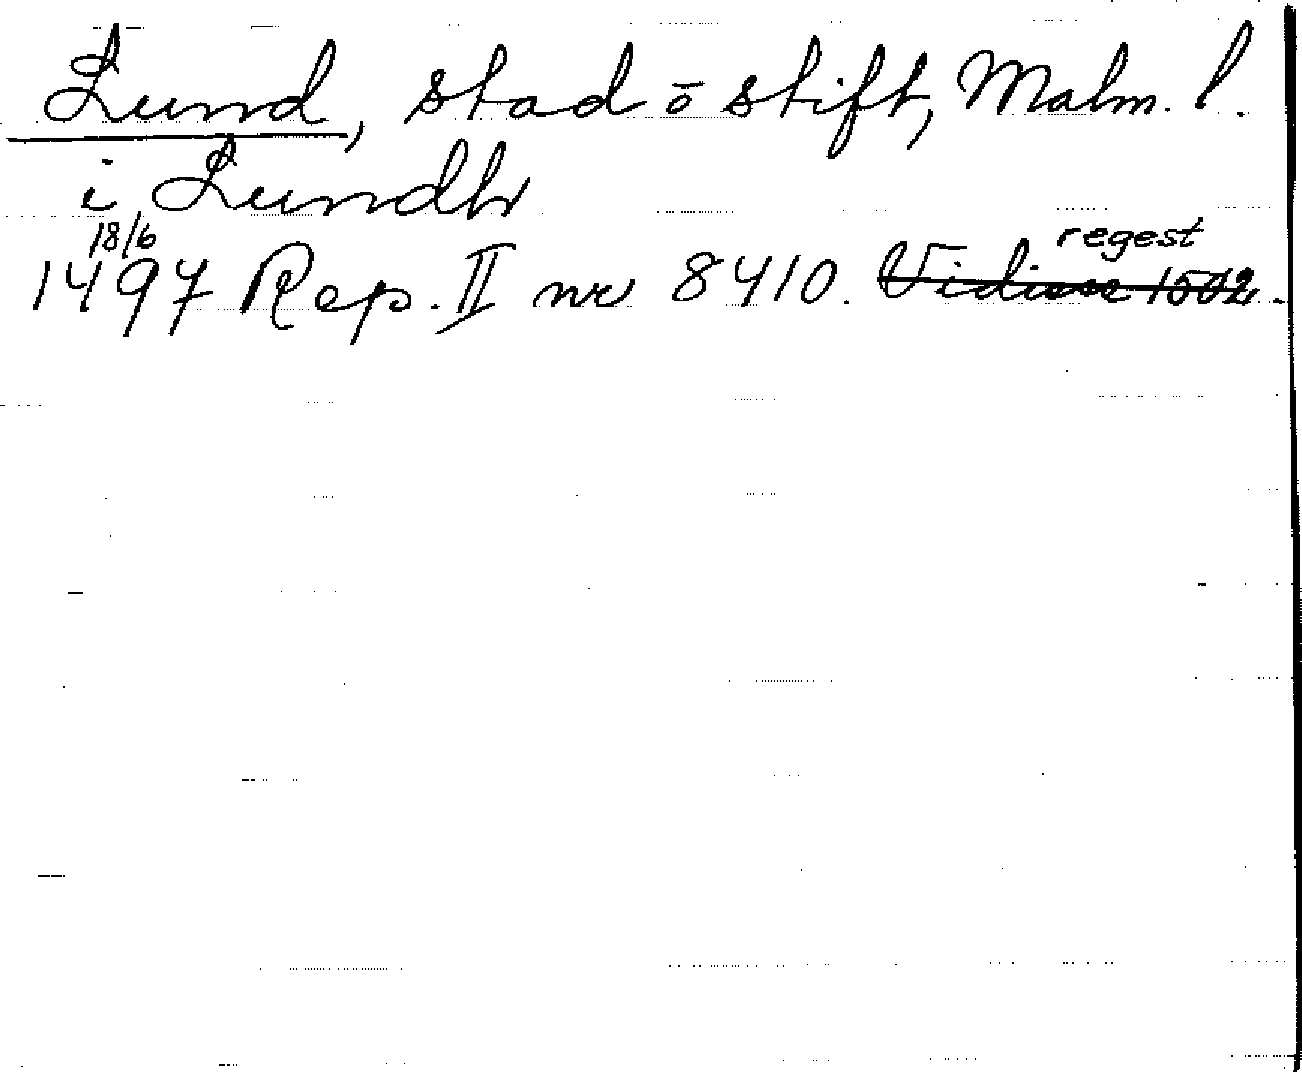 Lund, stad ō stift, Malm. l.
i Lundh
18/6
1497 Rep. II nr 8410. Vidisse 1502. regest